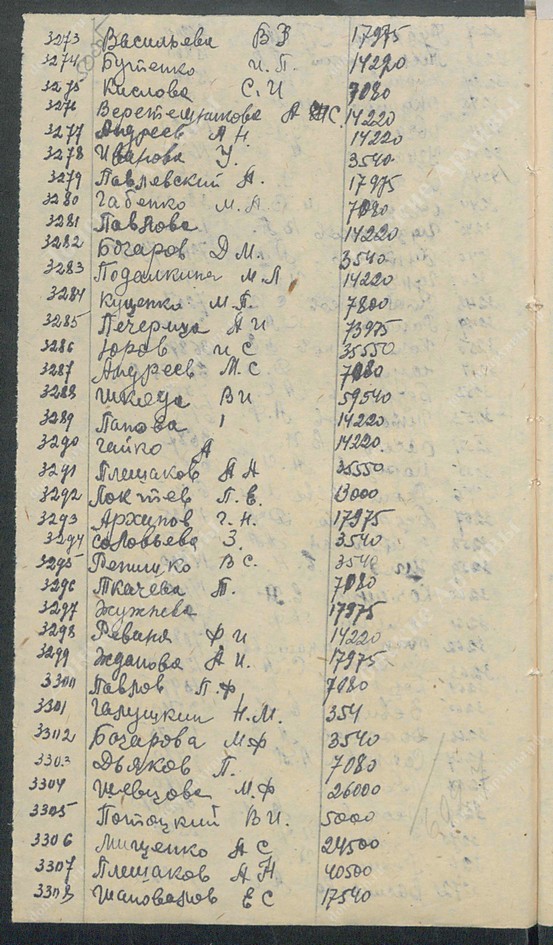 3273 Васильева В З 17975
3274 Бутенко И. П. 14220
3275 Кислова С. И 7080
3276 Веретешникова А С. 14220
3277 Андреев А Н. 14220
3278 Иванова У. 3540
3279 Павлевский А. 17975
3280 Габенко М. А. 7080
3281 Павлова 14220
3282 Богаров Д М. 3540
3283 М Л 14220
3284 Куценко М. П. 7800
3285 Печерица А И 73975
3286 Юров И С 35550
3287 Андреев М. С 7080
3288 Шкода В И 59540
3289 Попова 14220
3290 Чайко А 14220
3291 Плешаков А Н 35550
3292 Локтев П. В. 13000
3293 Архипов Г. Н. 17975
3294 Соловьева З. 3540
3295 В С. 3540
3296 Ткачева П. 7080
3297 17975
3298 Ревина Ф И 14220
3299 Жданова А И. 17975
3300 Павлов П. Ф 7080
3301 Галушкин Н. М. 354
3302 Бочарова М Ф 3540
3303 Дьяков П. 7080
3304 Шевцова М. Ф 26000
3305 Потоцкий В И. 5000
3306 Мищенко А С 24500
3307 Плешаков А Н 40500
3308 Шаповалов Е С 17540